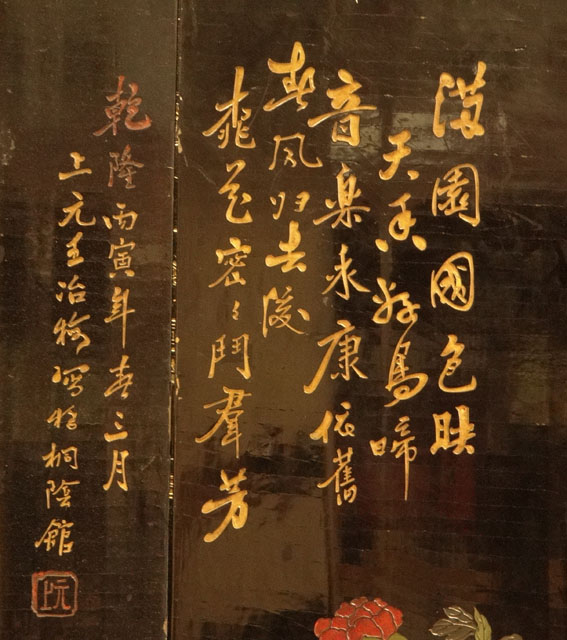 满園國色映
天香好鳥啼
音樂未康依舊
春风归去後
桃花密々鬥羣芳
乾隆丙寅年春三月
上元王冶梅寫於桐陰館